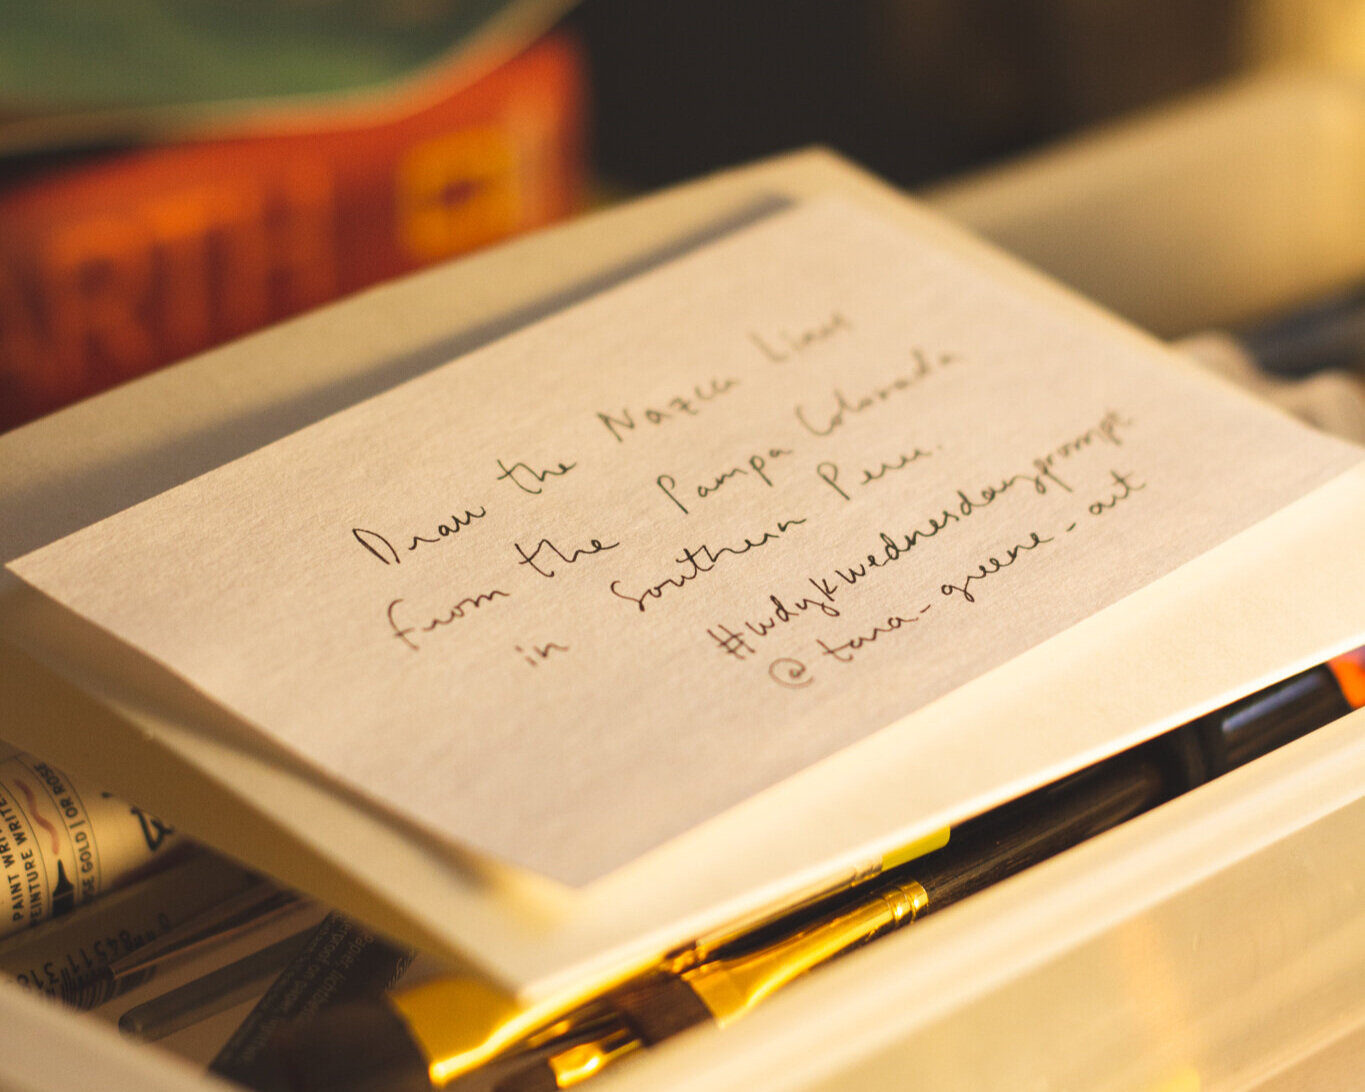 ARTH
Draw the Nazca Lines
from the Pampa Colorada
in Southern Peru.
#wdykwednesdayprompt
@tara-greene-art
PAINT WRITE
PEINTURE WRITE
GOLD | OR ROSE